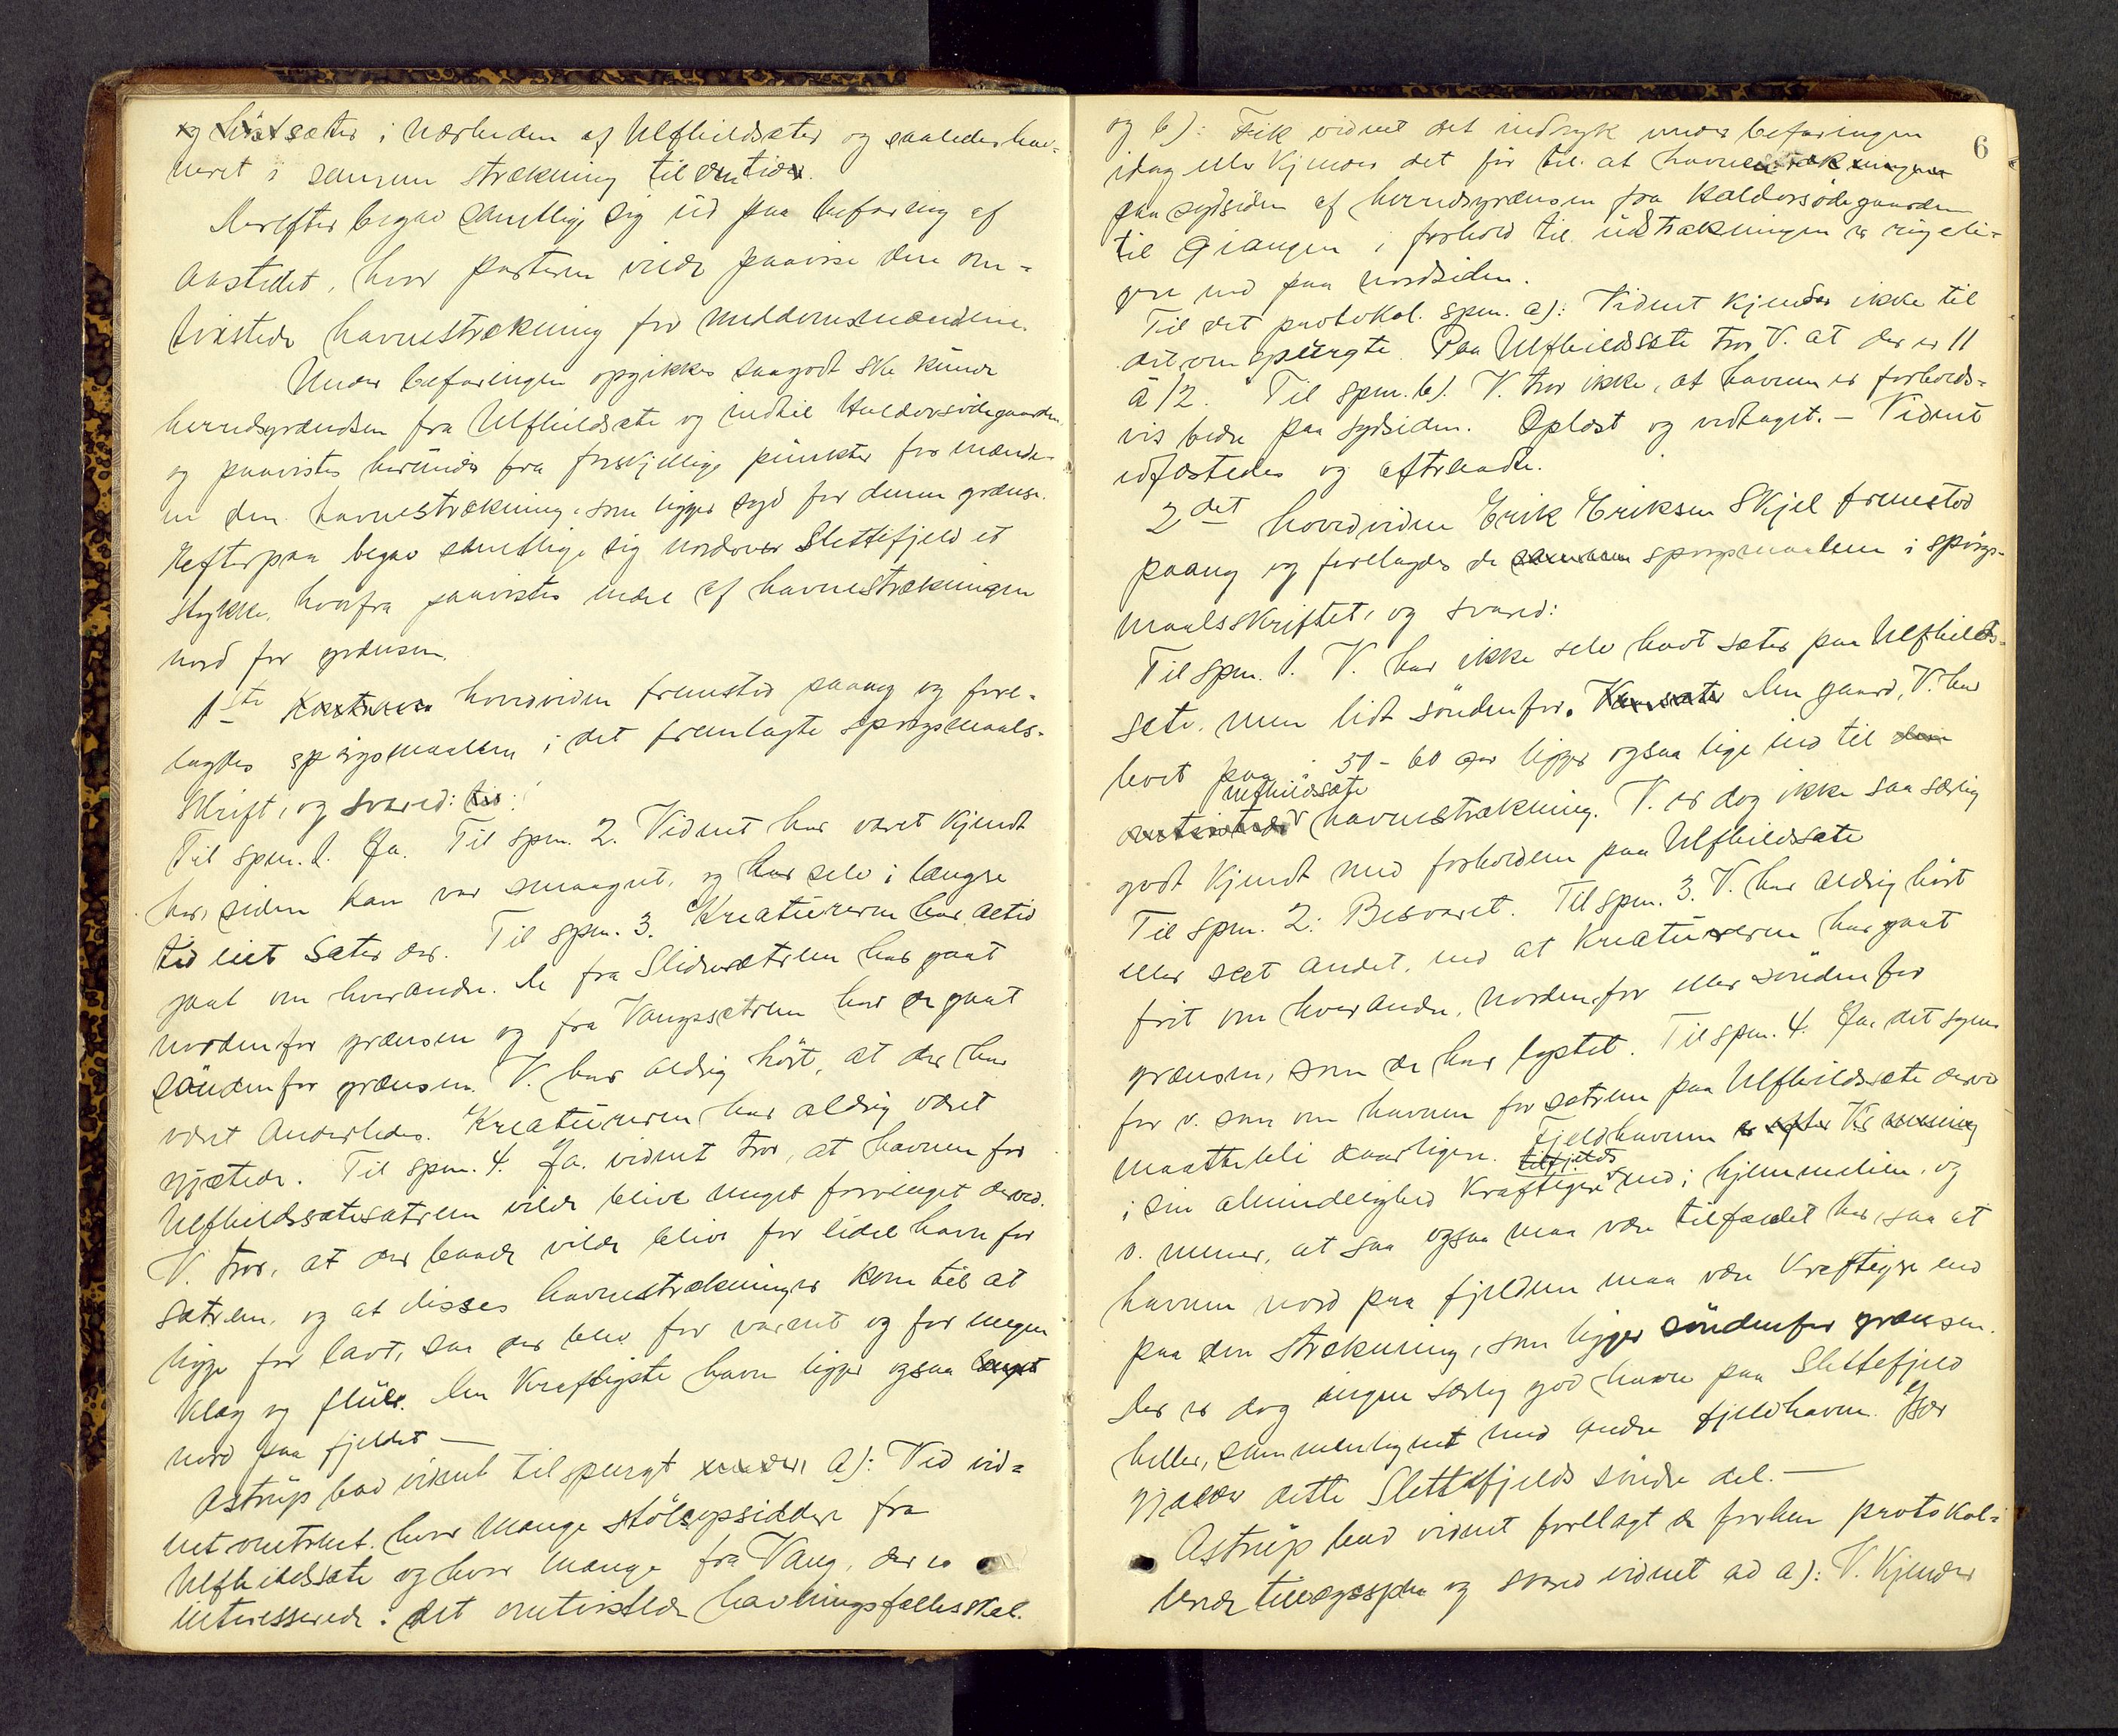 og höstsæter i nærheden af Ulfhildsæter og saaledes hav-
net i samme strækning til den tid.
Derefter begav samtlige sig ud paa befaring af
aastedet, hvor parterne vilde paavise den om-
tvistede havnestrækning for meddomsmændene.
Under befaringen opgikkes saagodt ske kunde
herredsgrændsen fra Ulfhildsæte og indtil Haldorsödegaarden
og paavistes herunder fra forskjellige punkter for mænde-
ne den havnestrækning, som ligger syd for denne grænse.
Efterpaa begav samtlige sig nordover Slettefjeld et
stykke, hvorfra paavistes endel af havnestrækningen
nord for grænsen.
1ste hovedvidne fremstod paany og fore-
lagdes spörgsmaalene i det fremlagte spörgsmaals-
skrift, og svared:
Til spm. 1. Ja. Til spm. 2. Vidnet har været kjendt
her, siden han var smaagut, og har selv i længre
tid eiet sæter der. Til spm. 3. Kreaturerne har altid
gaat om hverandre. De fra Slidresætrene har gaat
nordenfor grænsen og fra Vangssætrene har de gaat
söndenfor grænsen. V. har aldrig hört, at det har
været anderledes. Kreaturerne har aldrig været
gjætede. Til spm. 4. Ja. vidnet tror, at havnen for
Ulfhildssætesætrene vilde blive meget forringet derved.
V. tror, at der baade vilde blive for lidet havn for
sætrene, og at disses havnestrækninger kom til at
ligge for lavt, saa der blev for varmt og for megen
klæg og flue. Den kraftigste havn ligger ogsaa
nord paa fjeldet —
Astrup bad vidnet tilspurgt a): Ved vid-
net omtrent hvor mange stölsopsiddere fra
Ulfhildssæte og hvor mange fra Vang, der er
interesserede i det omtvistede havningsfællesskab.
6
og b): Fik vidnet det indtryk under befaringen
idag eller kjender det för til at havnestrækningen
paa sydsiden af herredsgrænsen fra Haldorsödegaarden
til Giangen i forhold til udstrækningen er ringeli-
gere end paa nordsiden.
Til det protokol. spm. a): Vidnet kjender ikke til
det om spurgte. Paa Ulfhildssæte tror V. at der er 11
à 12. Til spm. b). V. tror ikke, at havnen er forholds-
vis bedre paa sydsiden. Oplæst og vedtaget. — Vidnet
edfæstedes og aftraadte.
2det hovedvidne Erik Eriksen Skjel fremstod
paany og forelagdes de spörgsmaalene i spörgs-
maalsskriftet, og svared:
Til spm. 1. V. har ikke selv havt sæter paa Ulfhilds-
sæte, men lidt söndenfor. Den gaard, V. har
boet paa i 50 - 60 aar ligger ogsaa lige ind til
Ulfhildsæte
havnestrækning. V. er dog ikke saa særlig
godt kjendt med forholdene paa Ulfhildssæte
Til spm. 2: Besvaret. Til spm. 3. V. har aldrig hört
eller seet andet, end at kreaturerne har gaat
frit om hverandre, nordenfor eller söndenfor
grænsen, som de har lystet. Til spm. 4. Ja, det synes
for v. som om havnen for sætrene paa Ulfhildssæte derved
maatte bli daarligere. Fjeldhavnen
tilfjelds
i sin almindelighed kraftigere end i hjemmelien, og
v. mener, at saa ogsaa maa være tilfældet her, saa at
havnen nord paa fjeldene maa være kraftigere end
paa den strækning, som ligger söndenfor grænsen.
Der er dog ingen særlig god havn paa Slettefjeld
heller, sammenlignet med andre fjeldhavn. Især
gjælder dette Slettefjelds söndre del. —
Astrup bad vidnet forelagt de forhen protokol-
lerede tillægsspm og svared vidnet ad a): V. kjender